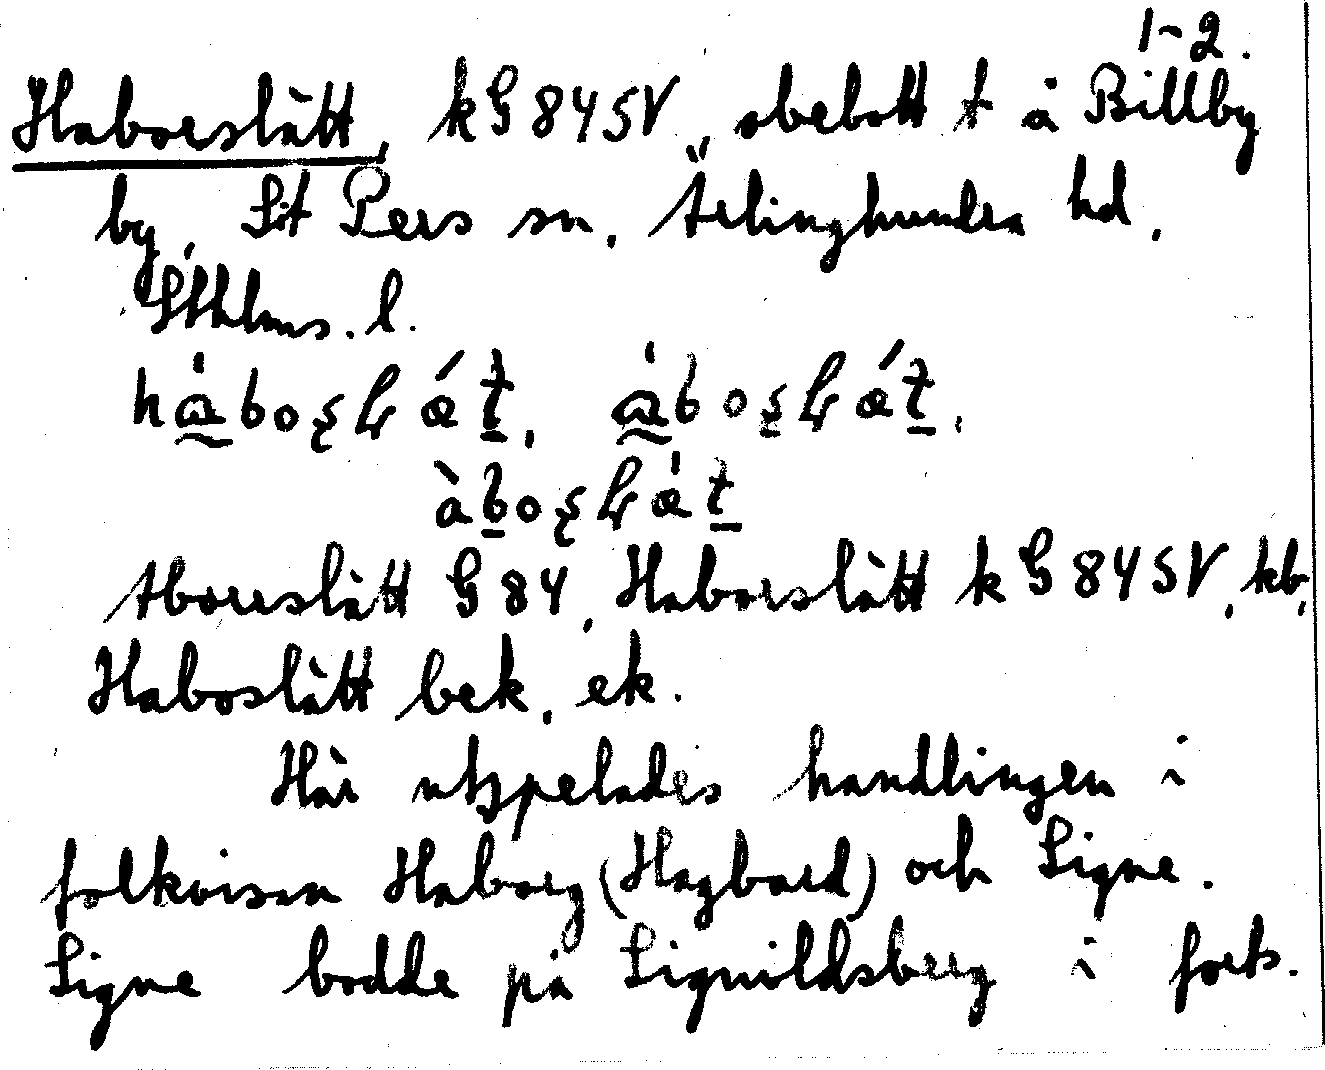 1-2.
Haborslätt, k G 84 SV, obebott t å Billby
by, S:t Pers sn, Ärlinghundra hd,
Sthlms. l.
Aborrslätt G 84, Haborslätt k G 84 SV, kb,
Haboslätt bek, ek.
Här utspelades handlingen i
folkvisan Haborg (Hagbard) och Signe.
Signe bodde på Signildsberg i forts.